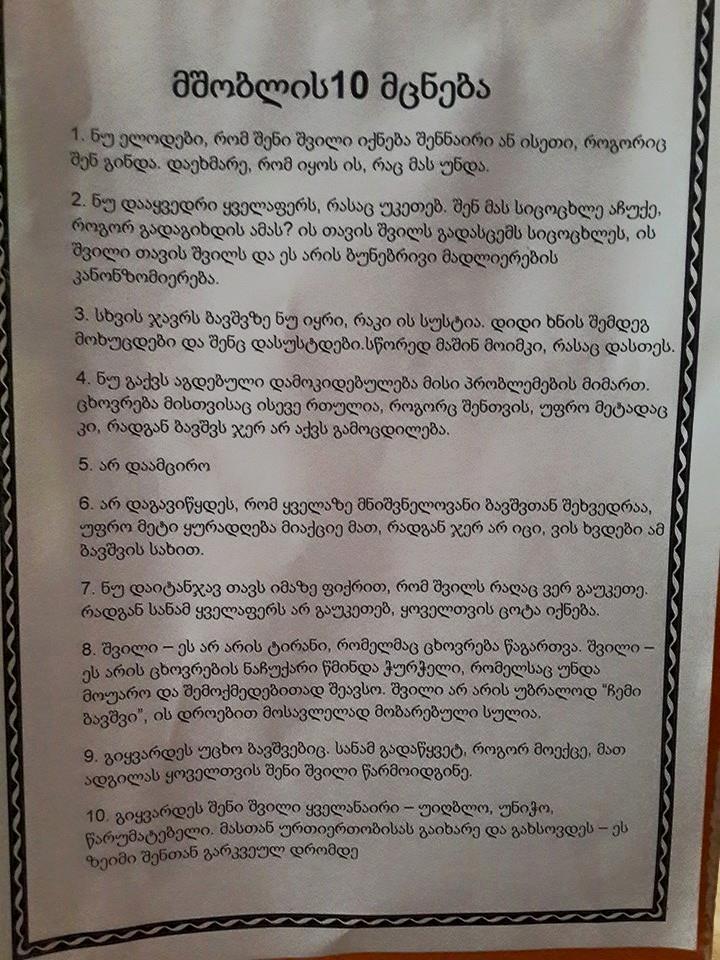 მშობლის10 მცნება
1. ნუ ელოდები, რომ შენი შვილი იქნება შენნაირი ან ისეთი, როგორიც
შენ გინდა. დაეხმარე, რომ იყოს ის, რაც მას უნდა.
2. ნუ დააყვედრი ყველაფერს, რასაც უკეთებ. შენ მას სიცოცხლე აჩუქე,
როგორ გადაგიხდის ამას? ის თავის შვილს გადასცემს სიცოცხლეს, ის
შვილი თავის შვილს და ეს არის ბუნებრივი მადლიერების
კანონზომიერება.
3. სხვის ჯავრს ბავშვზე ნუ იყრი, რაკი ის სუსტია. დიდი ხნის შემდეგ
მოხუცდები და შენც დასუსტდები.სწორედ მაშინ მოიმკი, რასაც დასთეს.
4. ნუ გაქვს აგდებული დამოკიდებულება მისი პრობლემების მიმართ.
ცხოვრება მისთვისაც ისევე რთულია, როგორც შენთვის, უფრო მეტადაც
კი, რადგან ბავშვს ჯერ არ აქვს გამოცდილება.
5. არ დაამცირო
6. არ დაგავიწყდეს, რომ ყველაზე მნიშვნელოვანი ბავშვთან შეხვედრაა,
უფრო მეტი ყურადღება მიაქციე მათ, რადგან ჯერ არ იცი, ვის ხვდები ამ
ბავშვის სახით.
7. ნუ დაიტანჯავ თავს იმაზე ფიქრით, რომ შვილს რაღაც ვერ გაუკეთე.
რადგან სანამ ყველაფერს არ გაუკეთებ, ყოველთვის ცოტა იქნება.
8. შვილი – ეს არ არის ტირანი, რომელმაც ცხოვრება წაგართვა. შვილი –
ეს არის ცხოვრების ნაჩუქარი წმინდა ჭურჭელი, რომელსაც უნდა
მოუარო და შემოქმედებითად შეავსო. შვილი არ არის უბრალოდ “ჩემი
ბავშვი”, ის დროებით მოსავლელად მობარებული სულია.
9. გიყვარდეს უცხო ბავშვებიც. სანამ გადაწყვეტ, როგორ მოექცე, მათ
ადგილას ყოველთვის შენი შვილი წარმოიდგინე.
10. გიყვარდეს შენი შვილი ყველანაირი – უიღბლო, უნიჭო,
წარუმატებელი. მასთან ურთიერთობისას გაიხარე და გახსოვდეს – ეს
ზეიმი შენთან გარკვეულ დრომდე